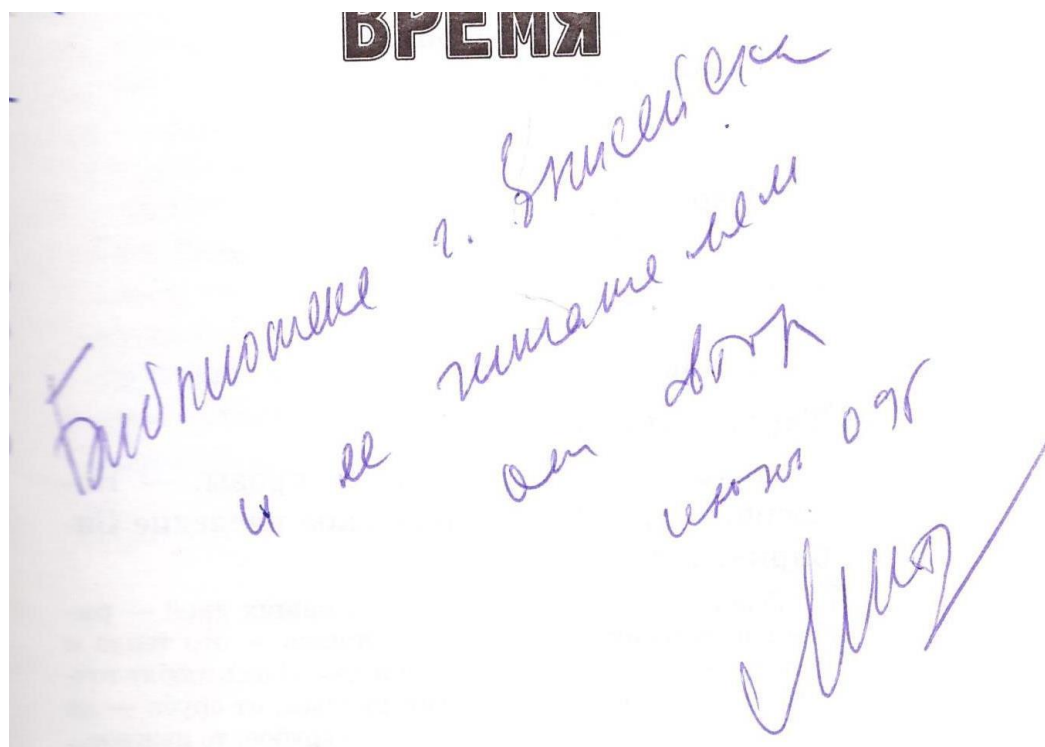 ВРЕМЯ
Библиотеке г. Енисейска
и ее читателям
от автора
июнь 09г